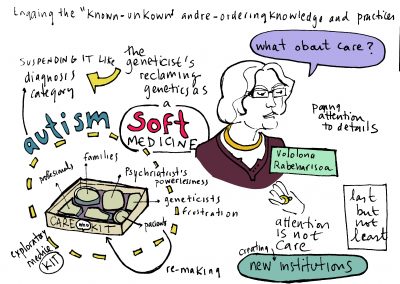 Engaging the "known-unkown" and re-ordering knowledge and practices
what about care?
SUSPENDING IT LIKE
diagnosis
category
the
geneticist's
reclaming
genetics as
a
SOFT
MEDICINE
autism
paying
attention
to details
Vololona
Rabeharisoa
professionals
families
Psychriatrist's
powerlessness
geneticists
frustration
patients
CARE
KIT
exploratory
KIT
re-making
attention
is not
care
creating
new institutions
last
but
not
least